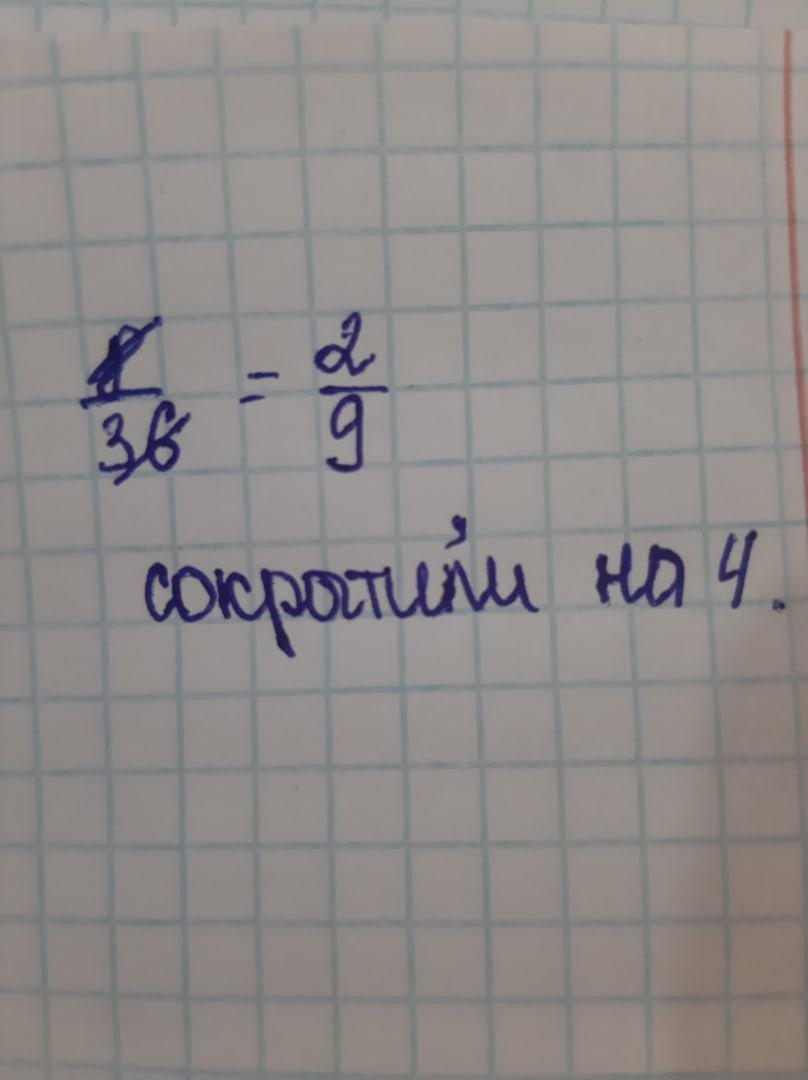 8/36 = 2/9
сократили на 4.